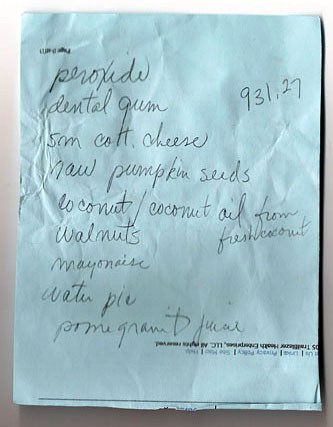 Page 1 of 1
peroxide
931.27
dental gum
sm cott. cheese
raw pumpkin seeds
coconut/coconut oil from
fresh coconut
walnuts
mayonaise
water pic
pomegranit juice
05 Trailblazer Health Enterprises, LLC. All rights reserved.
t Us | Links | Privacy Policy | Site Map | Help |